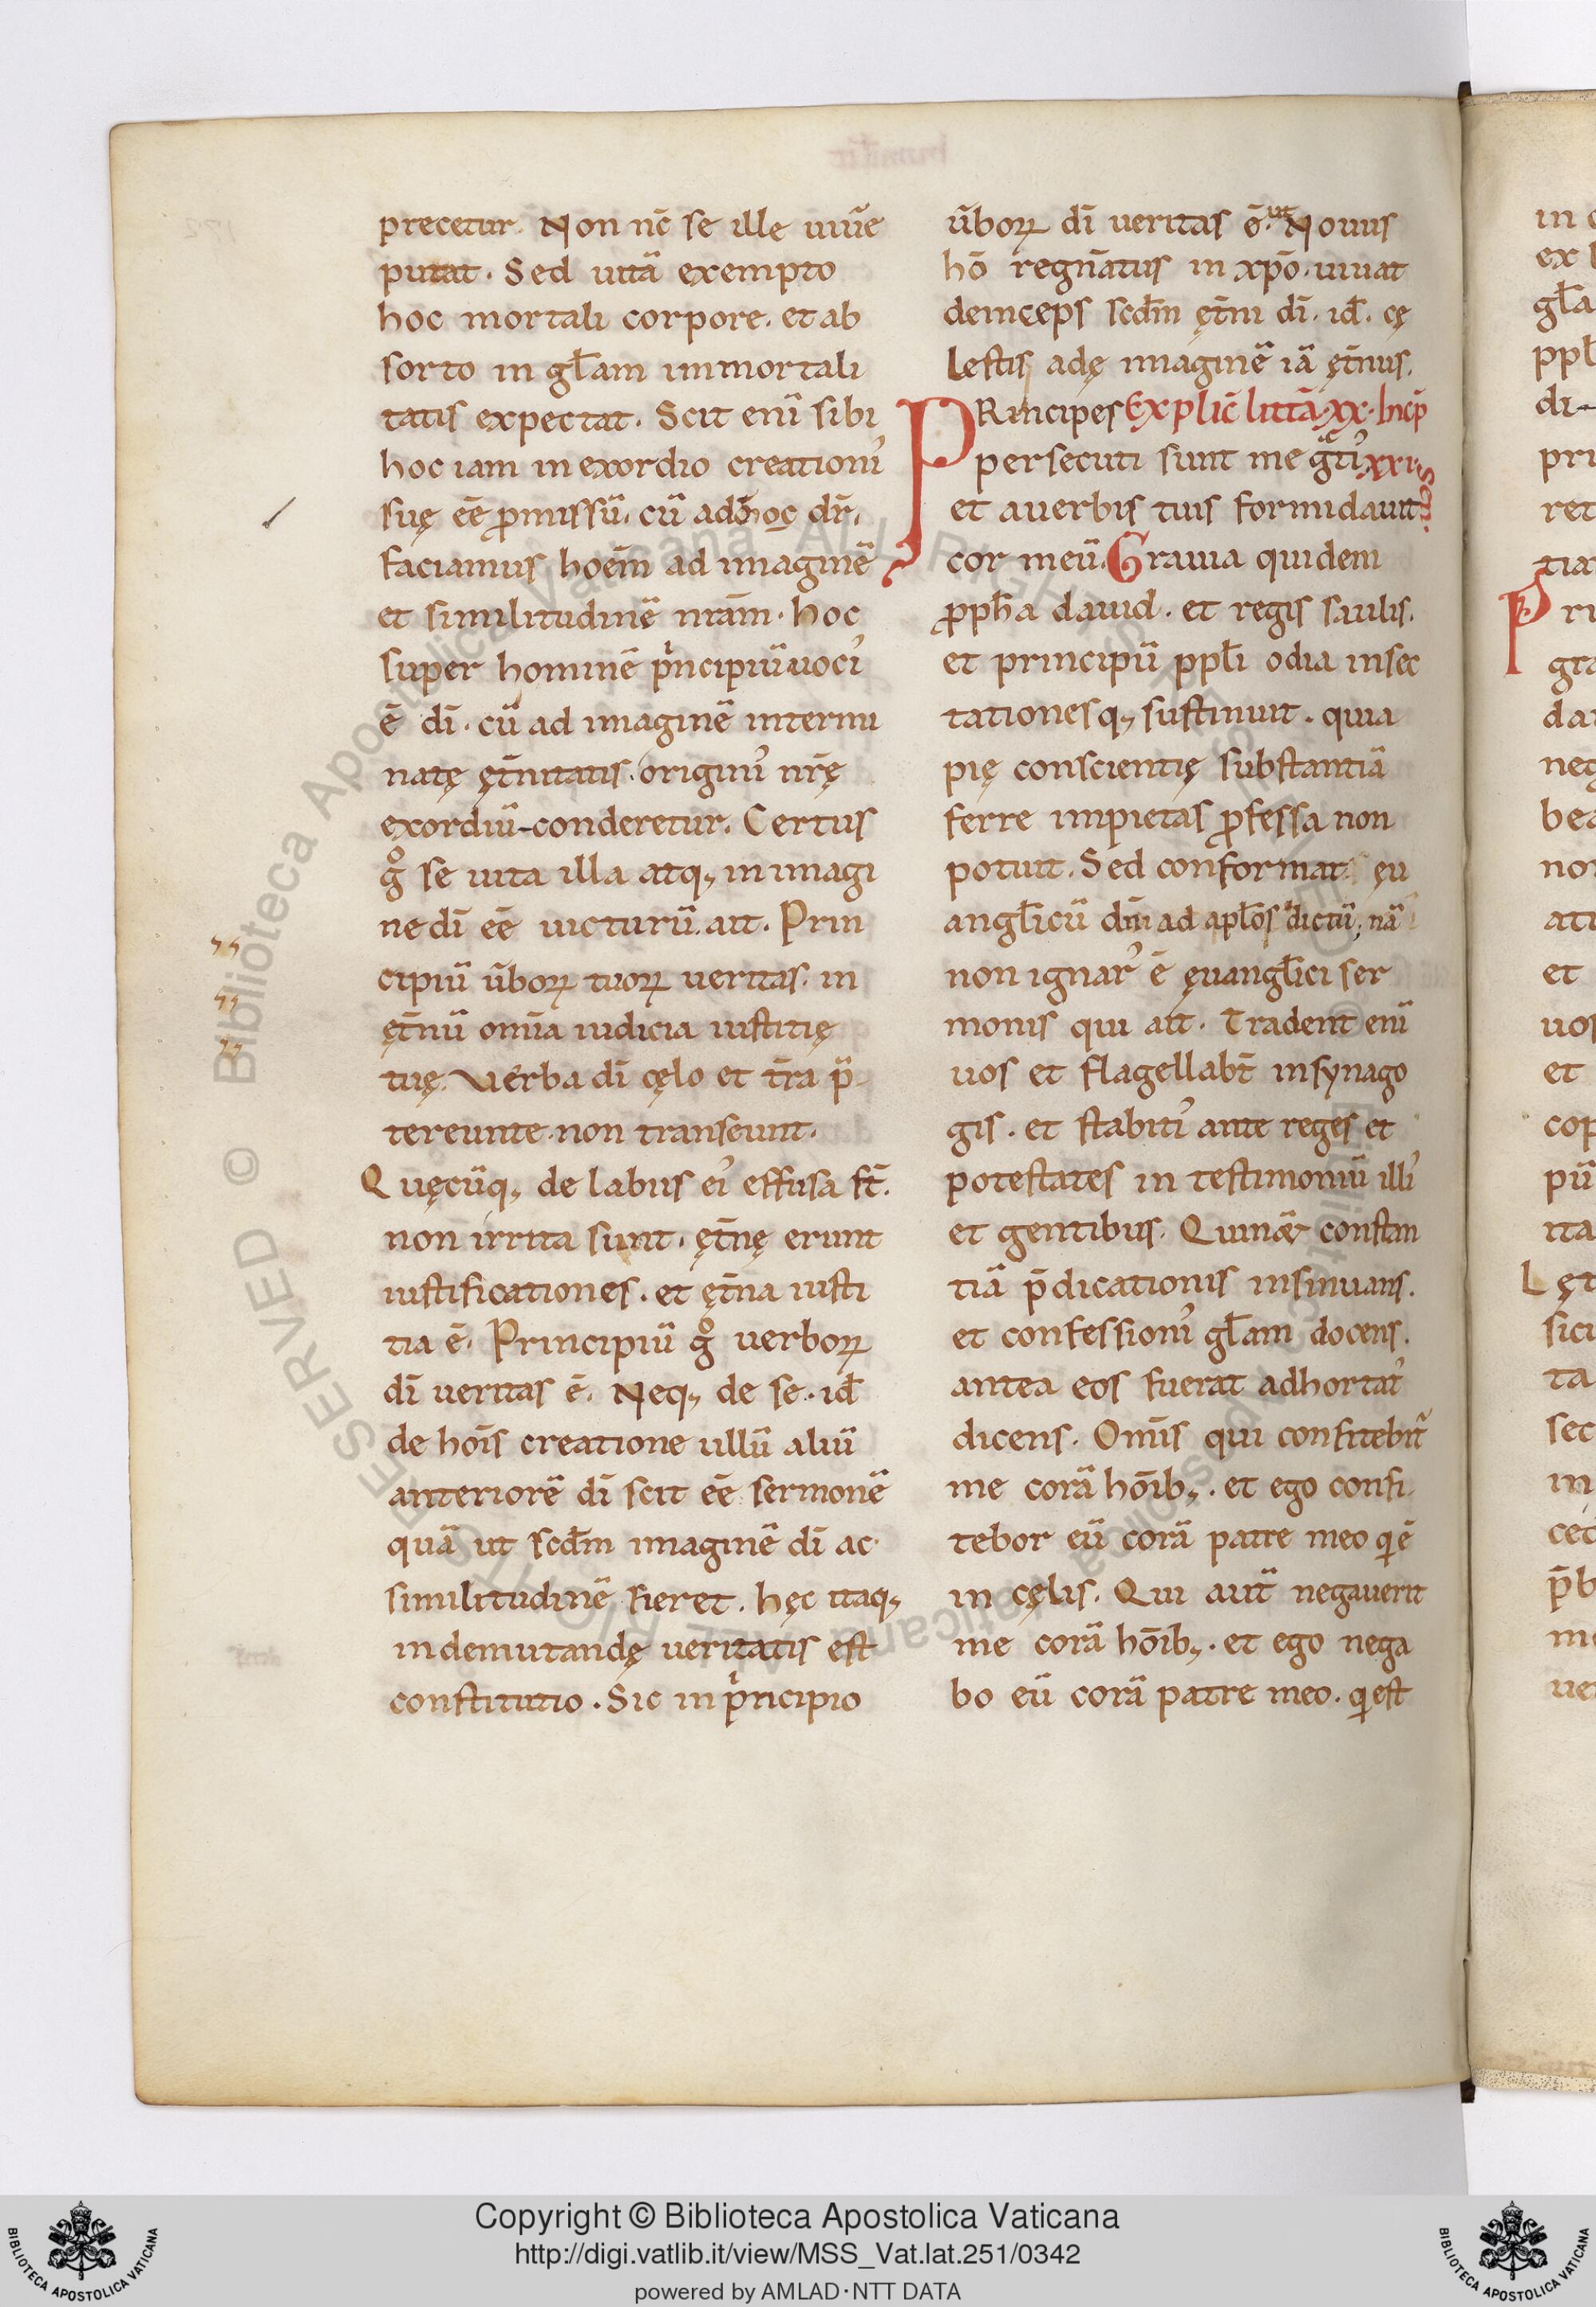 precetur. Non nc̄ se ille uiue᷃
putat. Sed uita᷃ exempto
hoc mortali corpore. et ab
sorto in gl̄am immortali
tatis expectat. Scit eni᷃ sibi
hoc iam in exordio creationiꝰ
suę ēē ꝓmissu᷃. cu᷃ adhoc dr̄.
faciamus hoēm ad imagine᷃
et similitudine᷃ nrām. hoc
super homine᷃ pͥncipiu᷃ uociꝰ
ē dī. cu᷃ ad imagine᷃ intermi
natę ęt̄nitatis. originiꝰ nr̄ę
exordiu᷃ conderetur. Certus
gͦ se uita illa atq; in imagi
ne dī ēē uicturu᷃. ait. Prin
cipiu᷃ ūboꝝ tuoꝝ ueritas. in
ęt̄nu᷃ omīa iudicia iustitię
tuę. Verba dī cęlo et t̄ra p̄
tereunte. non transeunt.
Quęcu᷃q; de labiis eiꝰ effusa st̄.
non irrita sunt. ęt̄nę erunt
iustificationes. et ęt̄na iusti
tia ē. Principiu᷃ gͦ uerboꝝ
dī ueritas ē. Neq; de se. id̄
de hoīs creatione ullu᷃ aliu᷃
anteriore᷃ dī scit ēē sermone᷃
qua᷃ ut scd̄m imagine᷃ dī ac
similitudine᷃ fieret. hęc itaq;
indemutandę ueritatis est
constitutio. Sic in pͥncipio
ūboꝝ dī ueritas ē. ut Nouus
hō regn̄atus in xp̄o. uiuat
deinceps scd̄m ęt̄ni dī. id̄. cę
lestis adę imagine᷃ ia᷃ ęt̄nus.
PRincipes Explic̄ litt̄a. xx. Incp̄
persecuti sunt me gͣtiꝰ xxi. Sen.
et auerbis tuis formidauit
cor meu᷃. Grauia quidem
ꝓph̄a dauid. et regis saulis.
et principu᷃ ppl̄i odia insec
tationesq; sustinuit. quia
pię conscientię substantia᷃
ferre impietas ꝓfessa non
potuit. Sed conformat eu
angl̄icu᷃ dn̄i ad apl̄os dictu᷃; na᷃
non ignarꝰ ē euangl̄ici ser
monis qui ait. Tradent eni᷃
uos et flagellabt̄ insynago
gis. et stabitiꝰ ante reges et
potestates in testimoniu᷃ illiꝰ
et gentibus. Quin& constan
tia᷃ p̄dicationis insinuans.
et confessioniꝰ gl̄am docens.
antea eos fuerat adhortatꝰ
dicens. Omīs qui confitebit᷃
me cora᷃ hōib;. et ego confi
tebor eu᷃ cora᷃ patre meo qͥ ē
in cęlis. Qui aut᷃ negauerit
me cora᷃ hōib;. et ego nega
bo eu᷃ cora᷃ patre meo. qͥ est
© Biblioteca Apostolica Vaticana ALL RIGHTS RESERVED
Copyright © Biblioteca Apostolica Vaticana
http://digi.vatlib.it/view/MSS_Vat.lat.251/0342
powered by AMLAD·NTT DATA
BIBLIOTECA APOSTOLICA VATICANA
BIBLIOTECA APOSTOLICA VATICANA